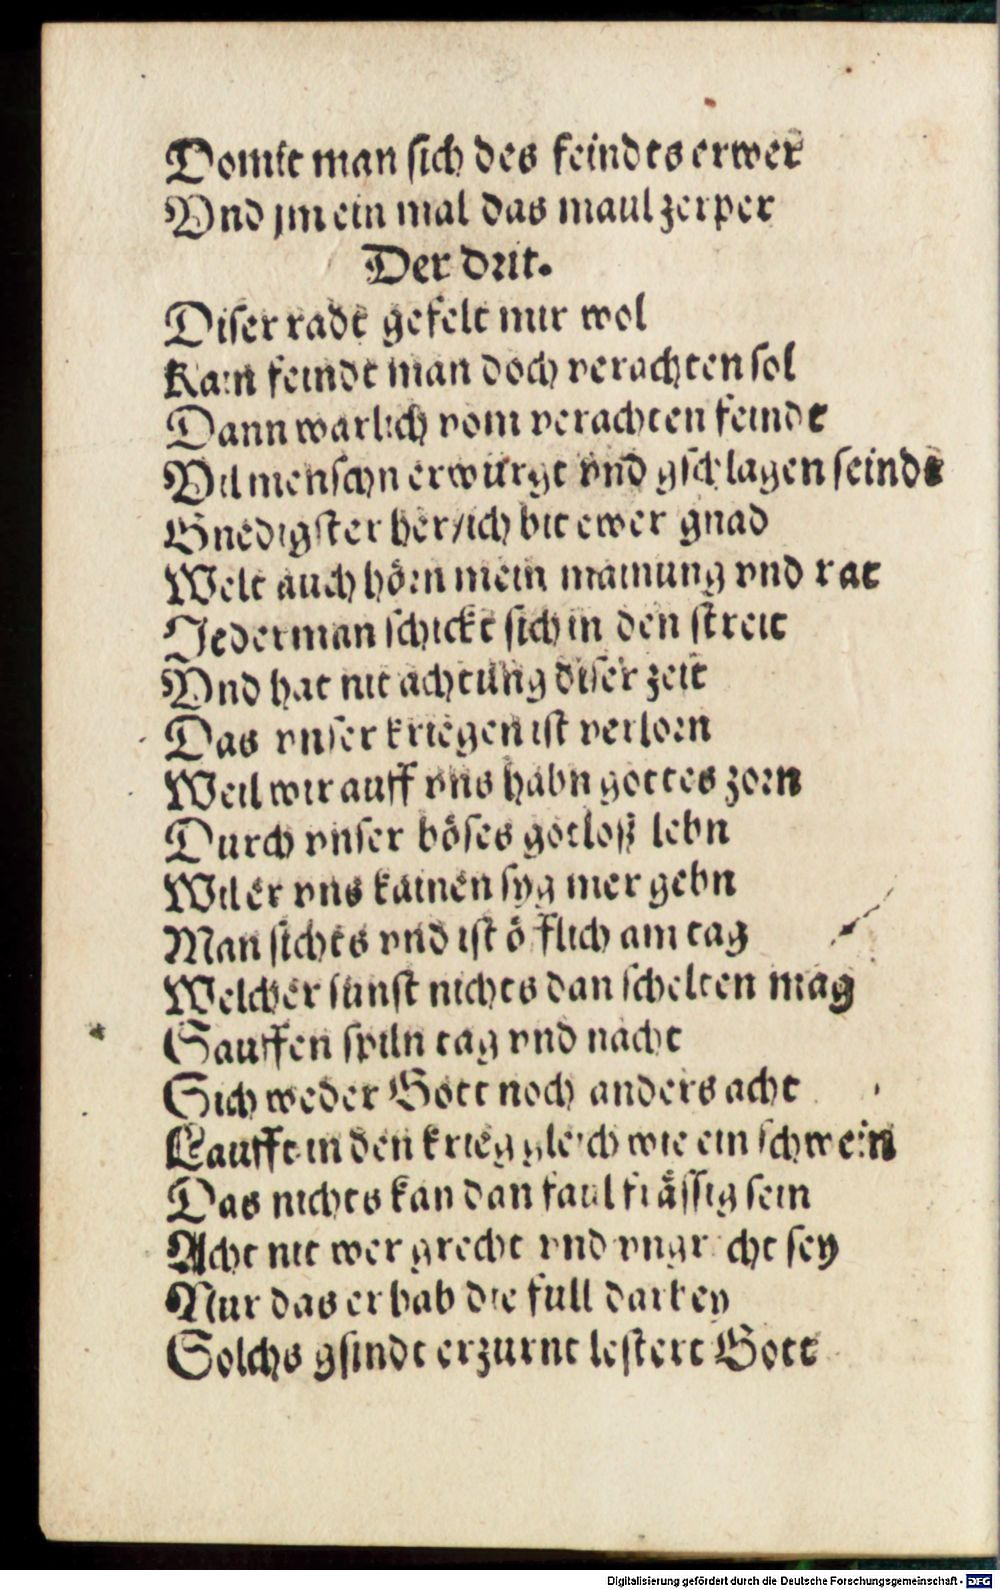 Domit man sich des feindts erwer
Vnd jm ein mal das maul zerper
Der drit.
Diser radt gefelt mir wol
Kain feindt man doch verachten sol
Dann warlich vom verachten feindt
Vil menschn erwürgt vnd gschlagen seindt
Gnedigster her/ich bit ewer gnad
Welt auch hörn mein mainung vnd rat
Jederman schickt sich in den streit
Vnd hat nit achtung diser zeit
Das vnser kriegen ist verlorn
Weil wir auff vns habn gottes zorn
Durch vnser böses gotloß lebn
Wil er vns kainen syg mer gebn
Man sichts vnd ist öfflich am tag
Welcher sunst nichts dan schelten mag
Sauffen spiln tag vnd nacht
Sich weder Gott noch anders acht
Laufft in den krieg gleich wie ein schwein
Das nichts kan dan faul frässig sein
Acht nit wer grecht vnd vngrecht sey
Nur das er hab die full darbey
Solchs gsindt erzurnt lestert Gott
Digitalisierung gefördert durch die Deutsche Forschungsgemeinschaft - DFG